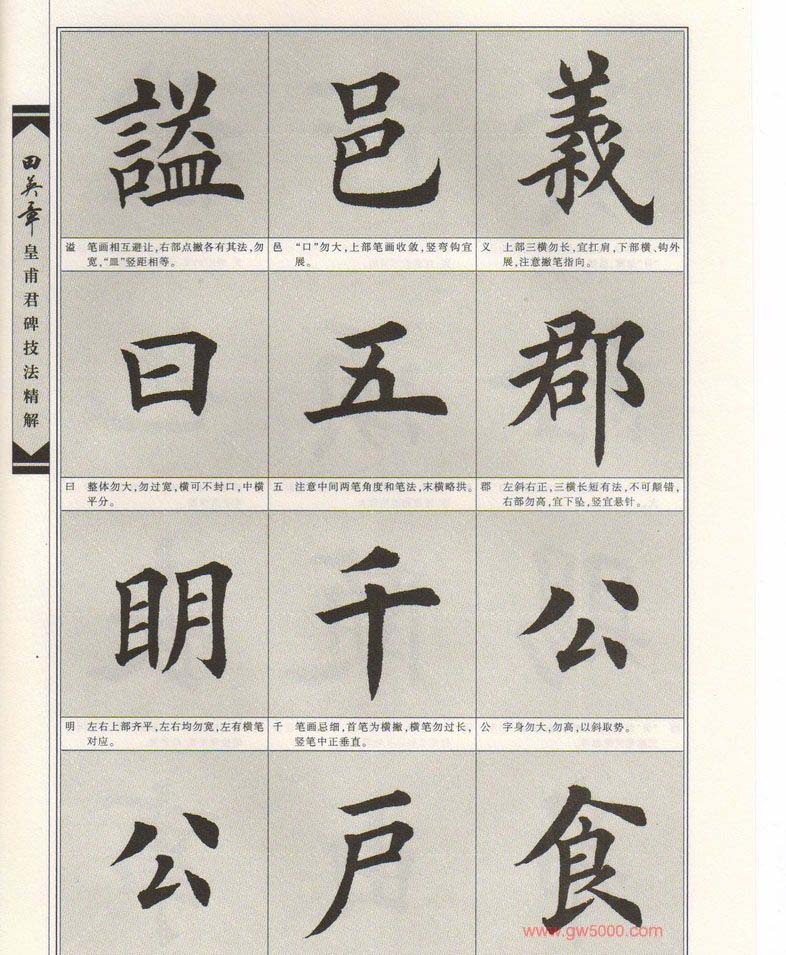 義
义 上部三横勿长，宜扛肩，下部横、钩外
展，注意撇笔指向。
郡
郡 左斜右正，三横长短有法，不可颠错，
右部勿高，宜下坠，竖宜悬针。
公
公 字身勿大，勿高，以斜取势。
食
邑
邑 “口”勿大，上部笔画收敛，竖弯钩宜
展。
五
五 注意中间两笔角度和笔法，末横略拱。
千
千 笔画忌细，首笔为横撇，横笔勿过长，
竖笔中正垂直。
戸
謚
谥 笔画相互避让，右部点撇各有其法，勿
宽，“皿”竖距相等。
曰
曰 整体勿大，勿过宽，横可不封口，中横
平分。
眀
明 左右上部齐平，左右均勿宽，左右横笔
对应。
公
田英章皇甫君碑技法精解
www.gw5000.com